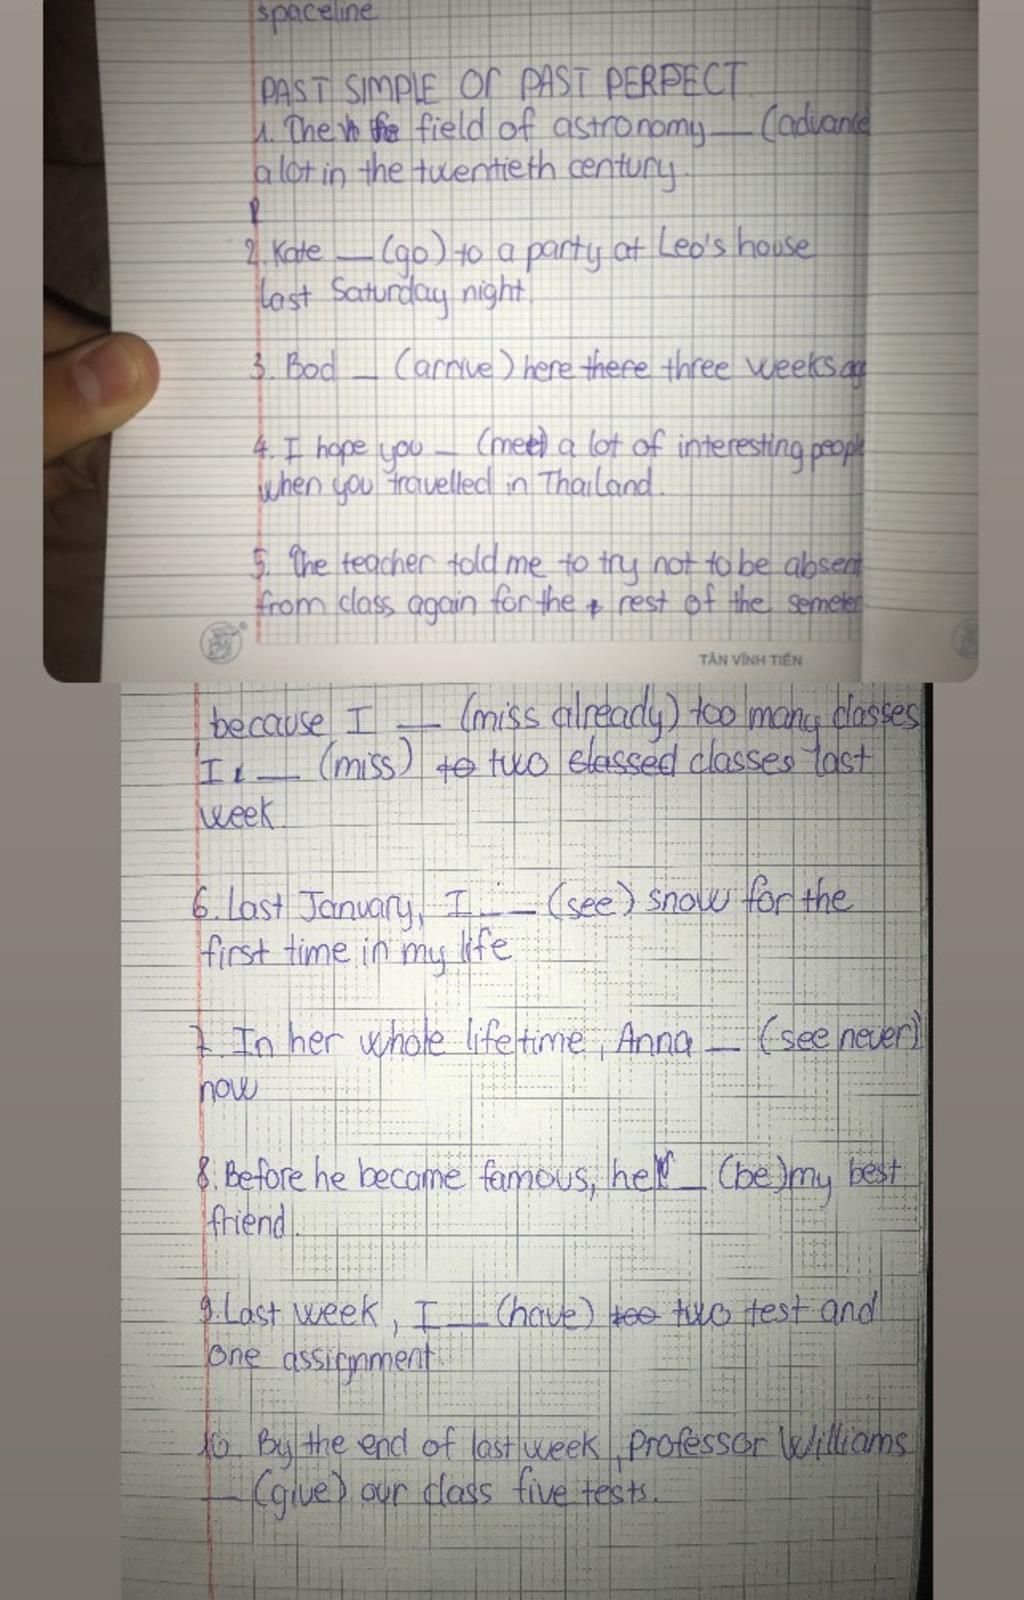 spaceline
PAST SIMPLE Or PAST PERFECT
1. The field of astronomy __ (advance
a lot in the twentieth century.
2. Kate __ (go) to a party at Leo's house
last Saturday night.
3. Bod _ (arrive) here there three weeks ag
4. I hope you _ (meet) a lot of interesting peopl
when you travelled in Thailand.
5. The teacher told me to try not to be absent
from class again for the rest of the semeter
TÂN VĨNH TIẾN
because I __ (miss already) too many classes
I __ (miss) to two classed classes last
week
6. Last January, I __ (see) snow for the
first time in my life
7. In her whole lifetime, Anna _ (see never)
now
8. Before he became famous, he _ (be) my best
friend.
9. Last week, I __ (have) too two test and
one assignment.
10. By the end of last week, Professor Williams
__ (give) our class five tests.